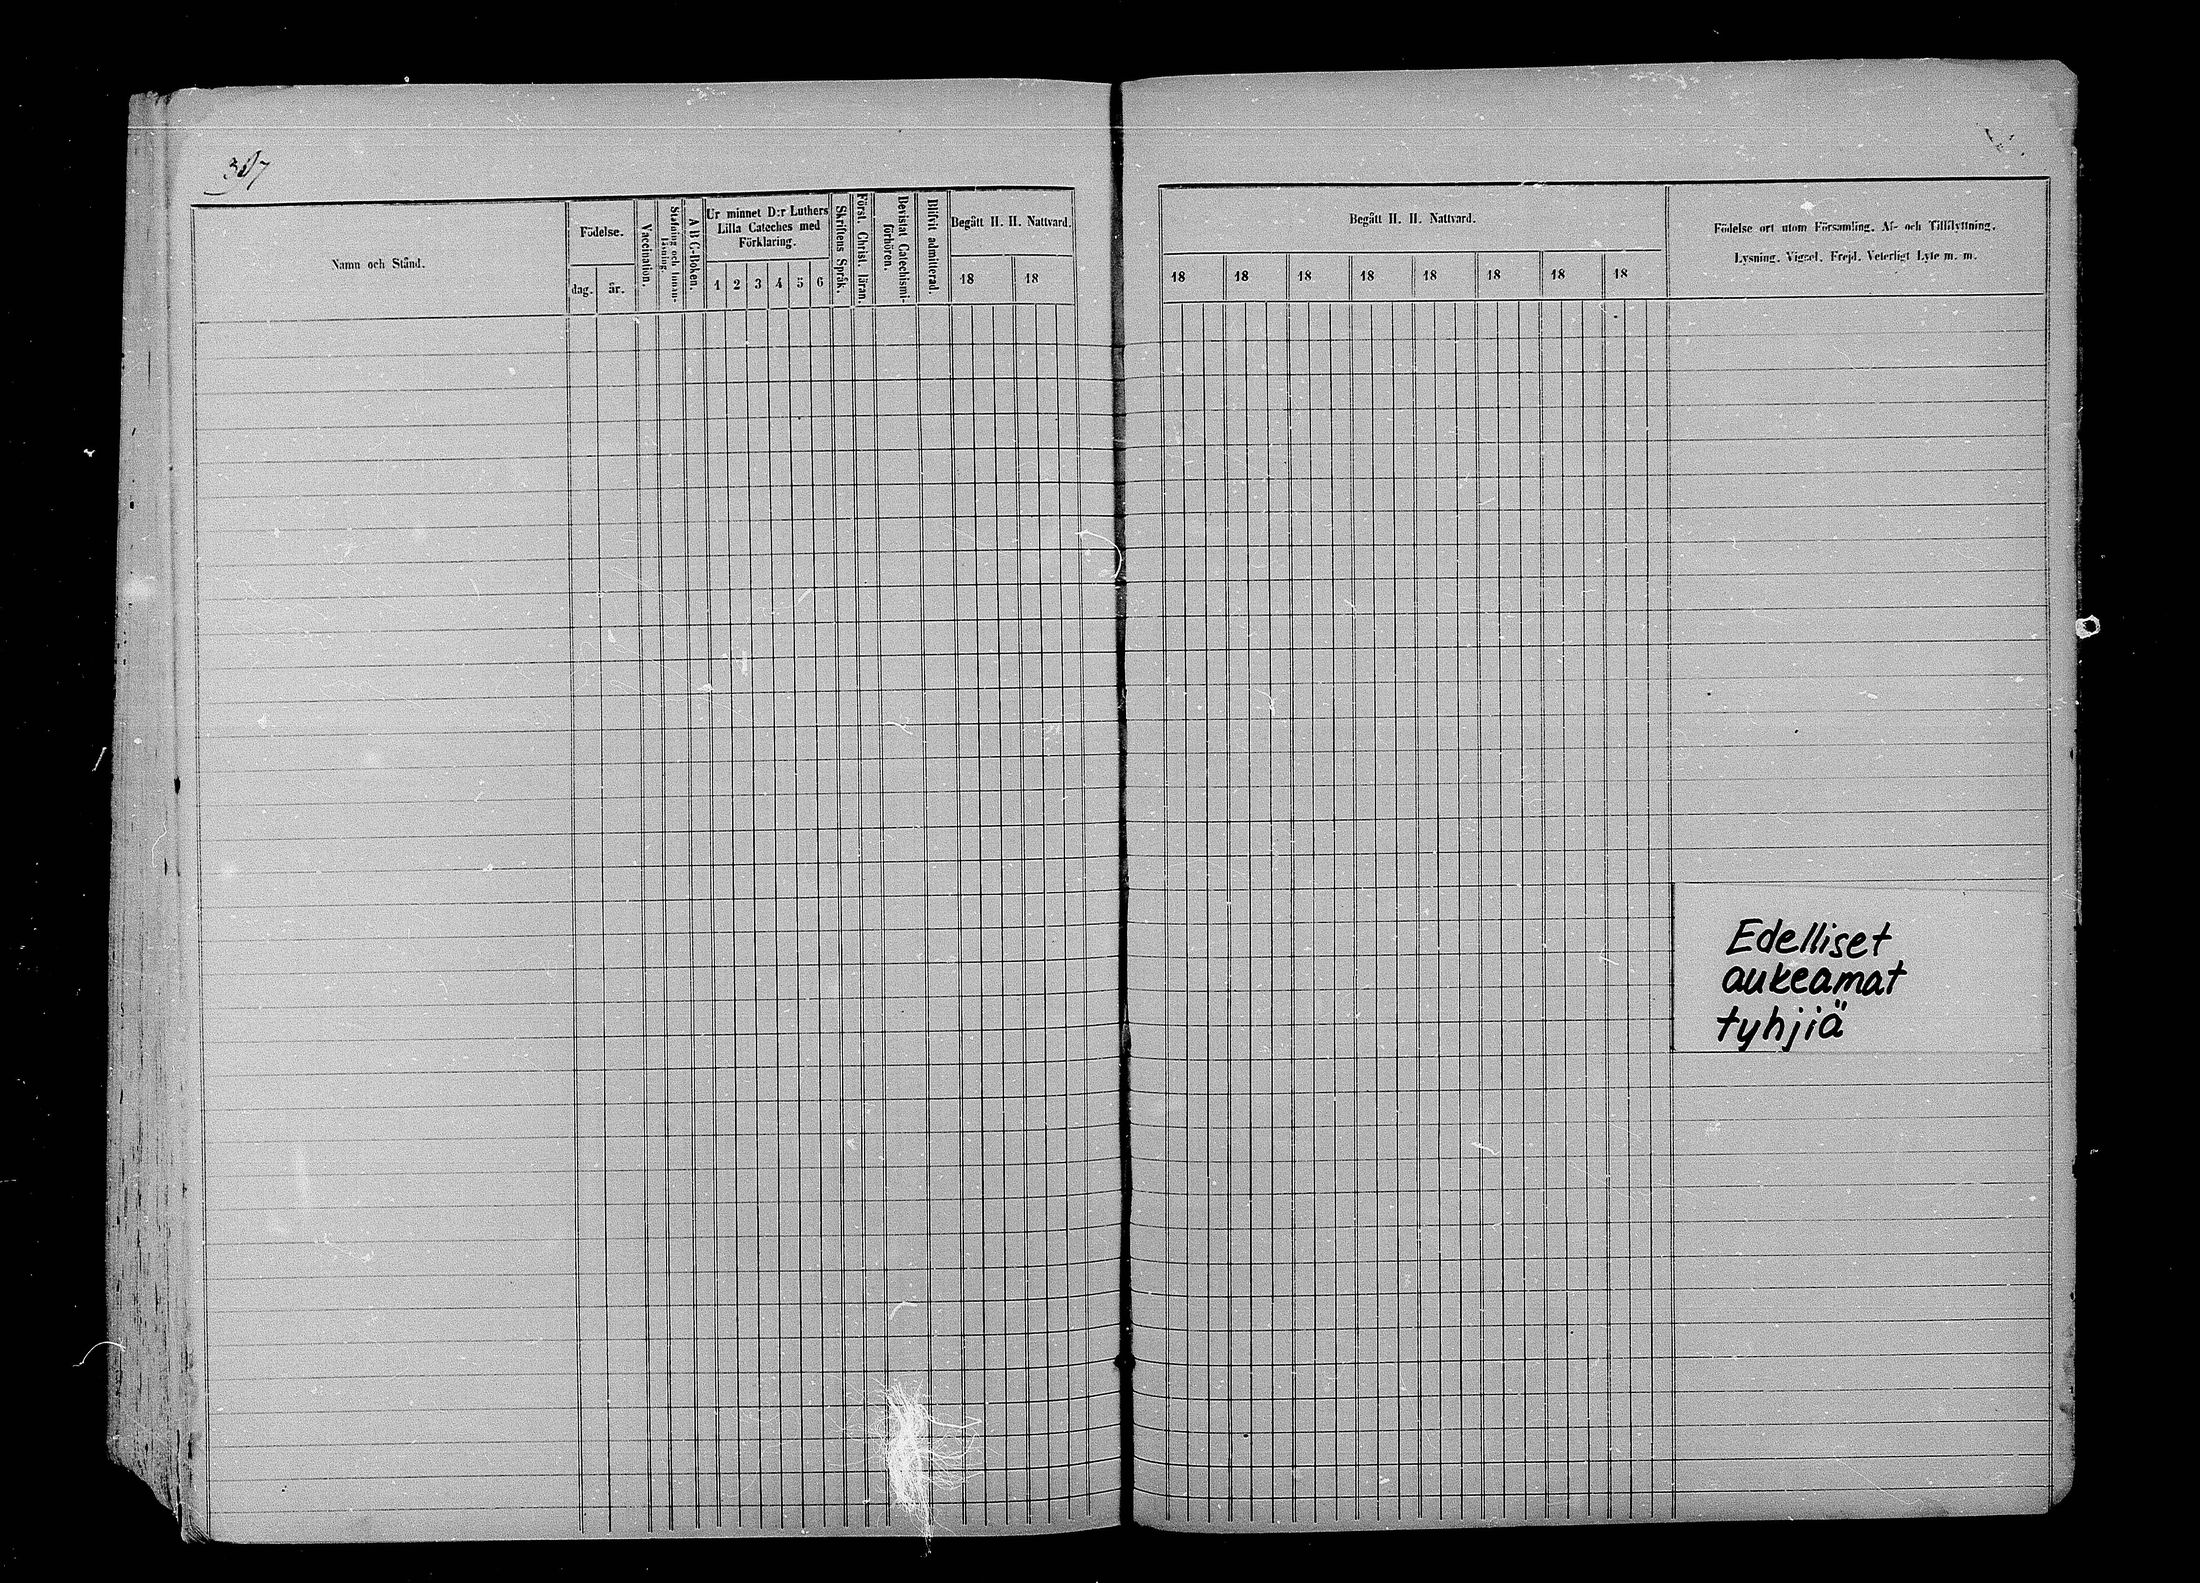 307
Namn och Stånd.
Födelse.
dag.
år.
Vaccination.
Stafning och Innan-
läsning.
A B C-Boken.
Ur minnet D:r Luthers
Lilla Cateches med
Förklaring.
1 2 3 4 5 6
Skriftens Språk.
Först. Christ. läran.
Bevistat Catechismi-
förhören.
Blifvit admitterad.
Begått H. H. Nattvard.
18 18
Begått H. H. Nattvard.
18 18 18 18 18 18 18 18
Födelse ort utom Församling. Af- och Tillflyttning.
Lysning. Vigsel. Frejd. Veterligt Lyte m. m.
Edelliset
aukeamat
tyhjiä